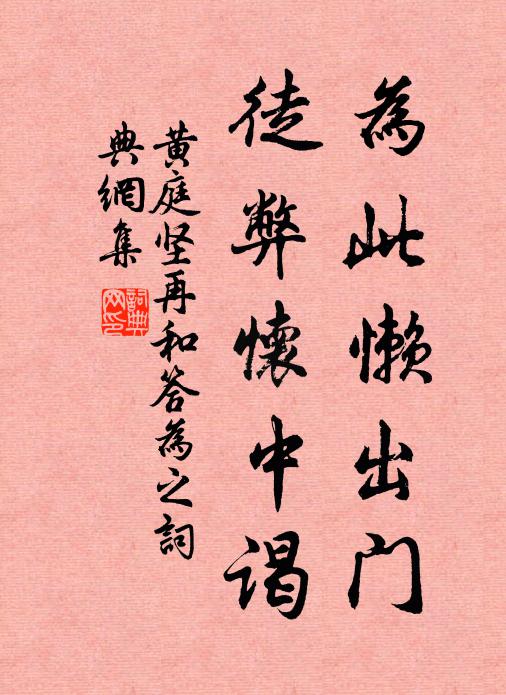 為此懒出门
徒弊懷中谒
黄庭坚再和答為之詞
典網集
詞典
网印